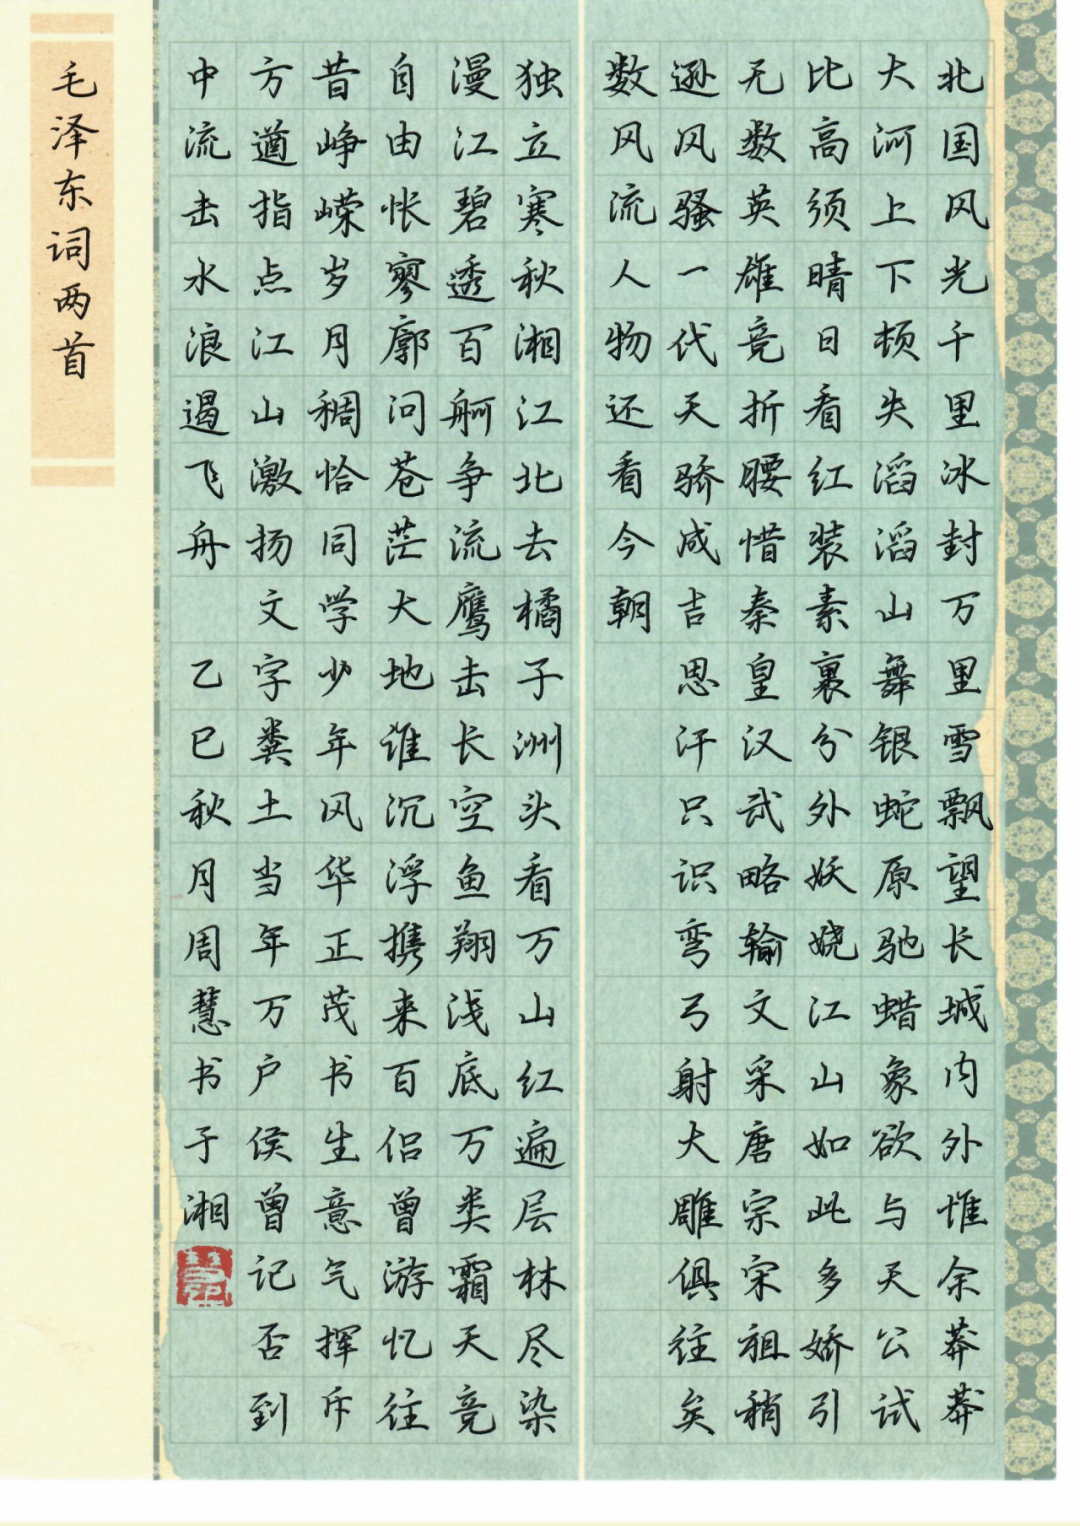 北国风光千里冰封万里雪飘望长城内外惟余莽莽
大河上下顿失滔滔山舞银蛇原驰蜡象欲与天公试
比高须晴日看红装素裹分外妖娆江山如此多娇引
无数英雄竞折腰惜秦皇汉武略输文采唐宗宋祖稍
逊风骚一代天骄成吉思汗只识弯弓射大雕俱往矣
数风流人物还看今朝
独立寒秋湘江北去橘子洲头看万山红遍层林尽染
漫江碧透百舸争流鹰击长空鱼翔浅底万类霜天竞
自由怅寥廓问苍茫大地谁沉浮携来百侣曾游忆往
昔峥嵘岁月稠恰同学少年风华正茂书生意气挥斥
方遒指点江山激扬文字粪土当年万户侯曾记否到
中流击水浪遏飞舟 乙巳秋月周慧书于湘
毛泽东词两首